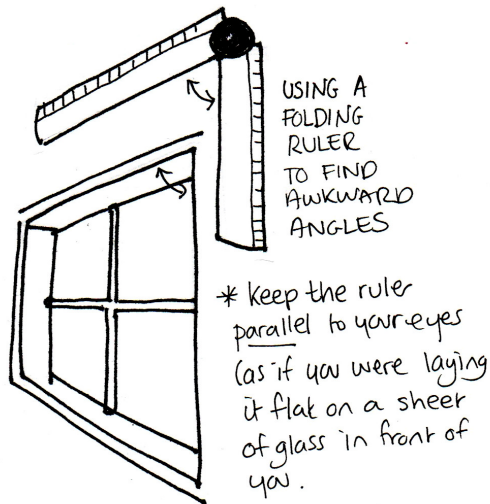 USING A
FOLDING
RULER
TO FIND
AWKWARD
ANGLES
* keep the ruler
parallel to your eyes
(as if you were laying
it flat on a sheet
of glass in front of
you.